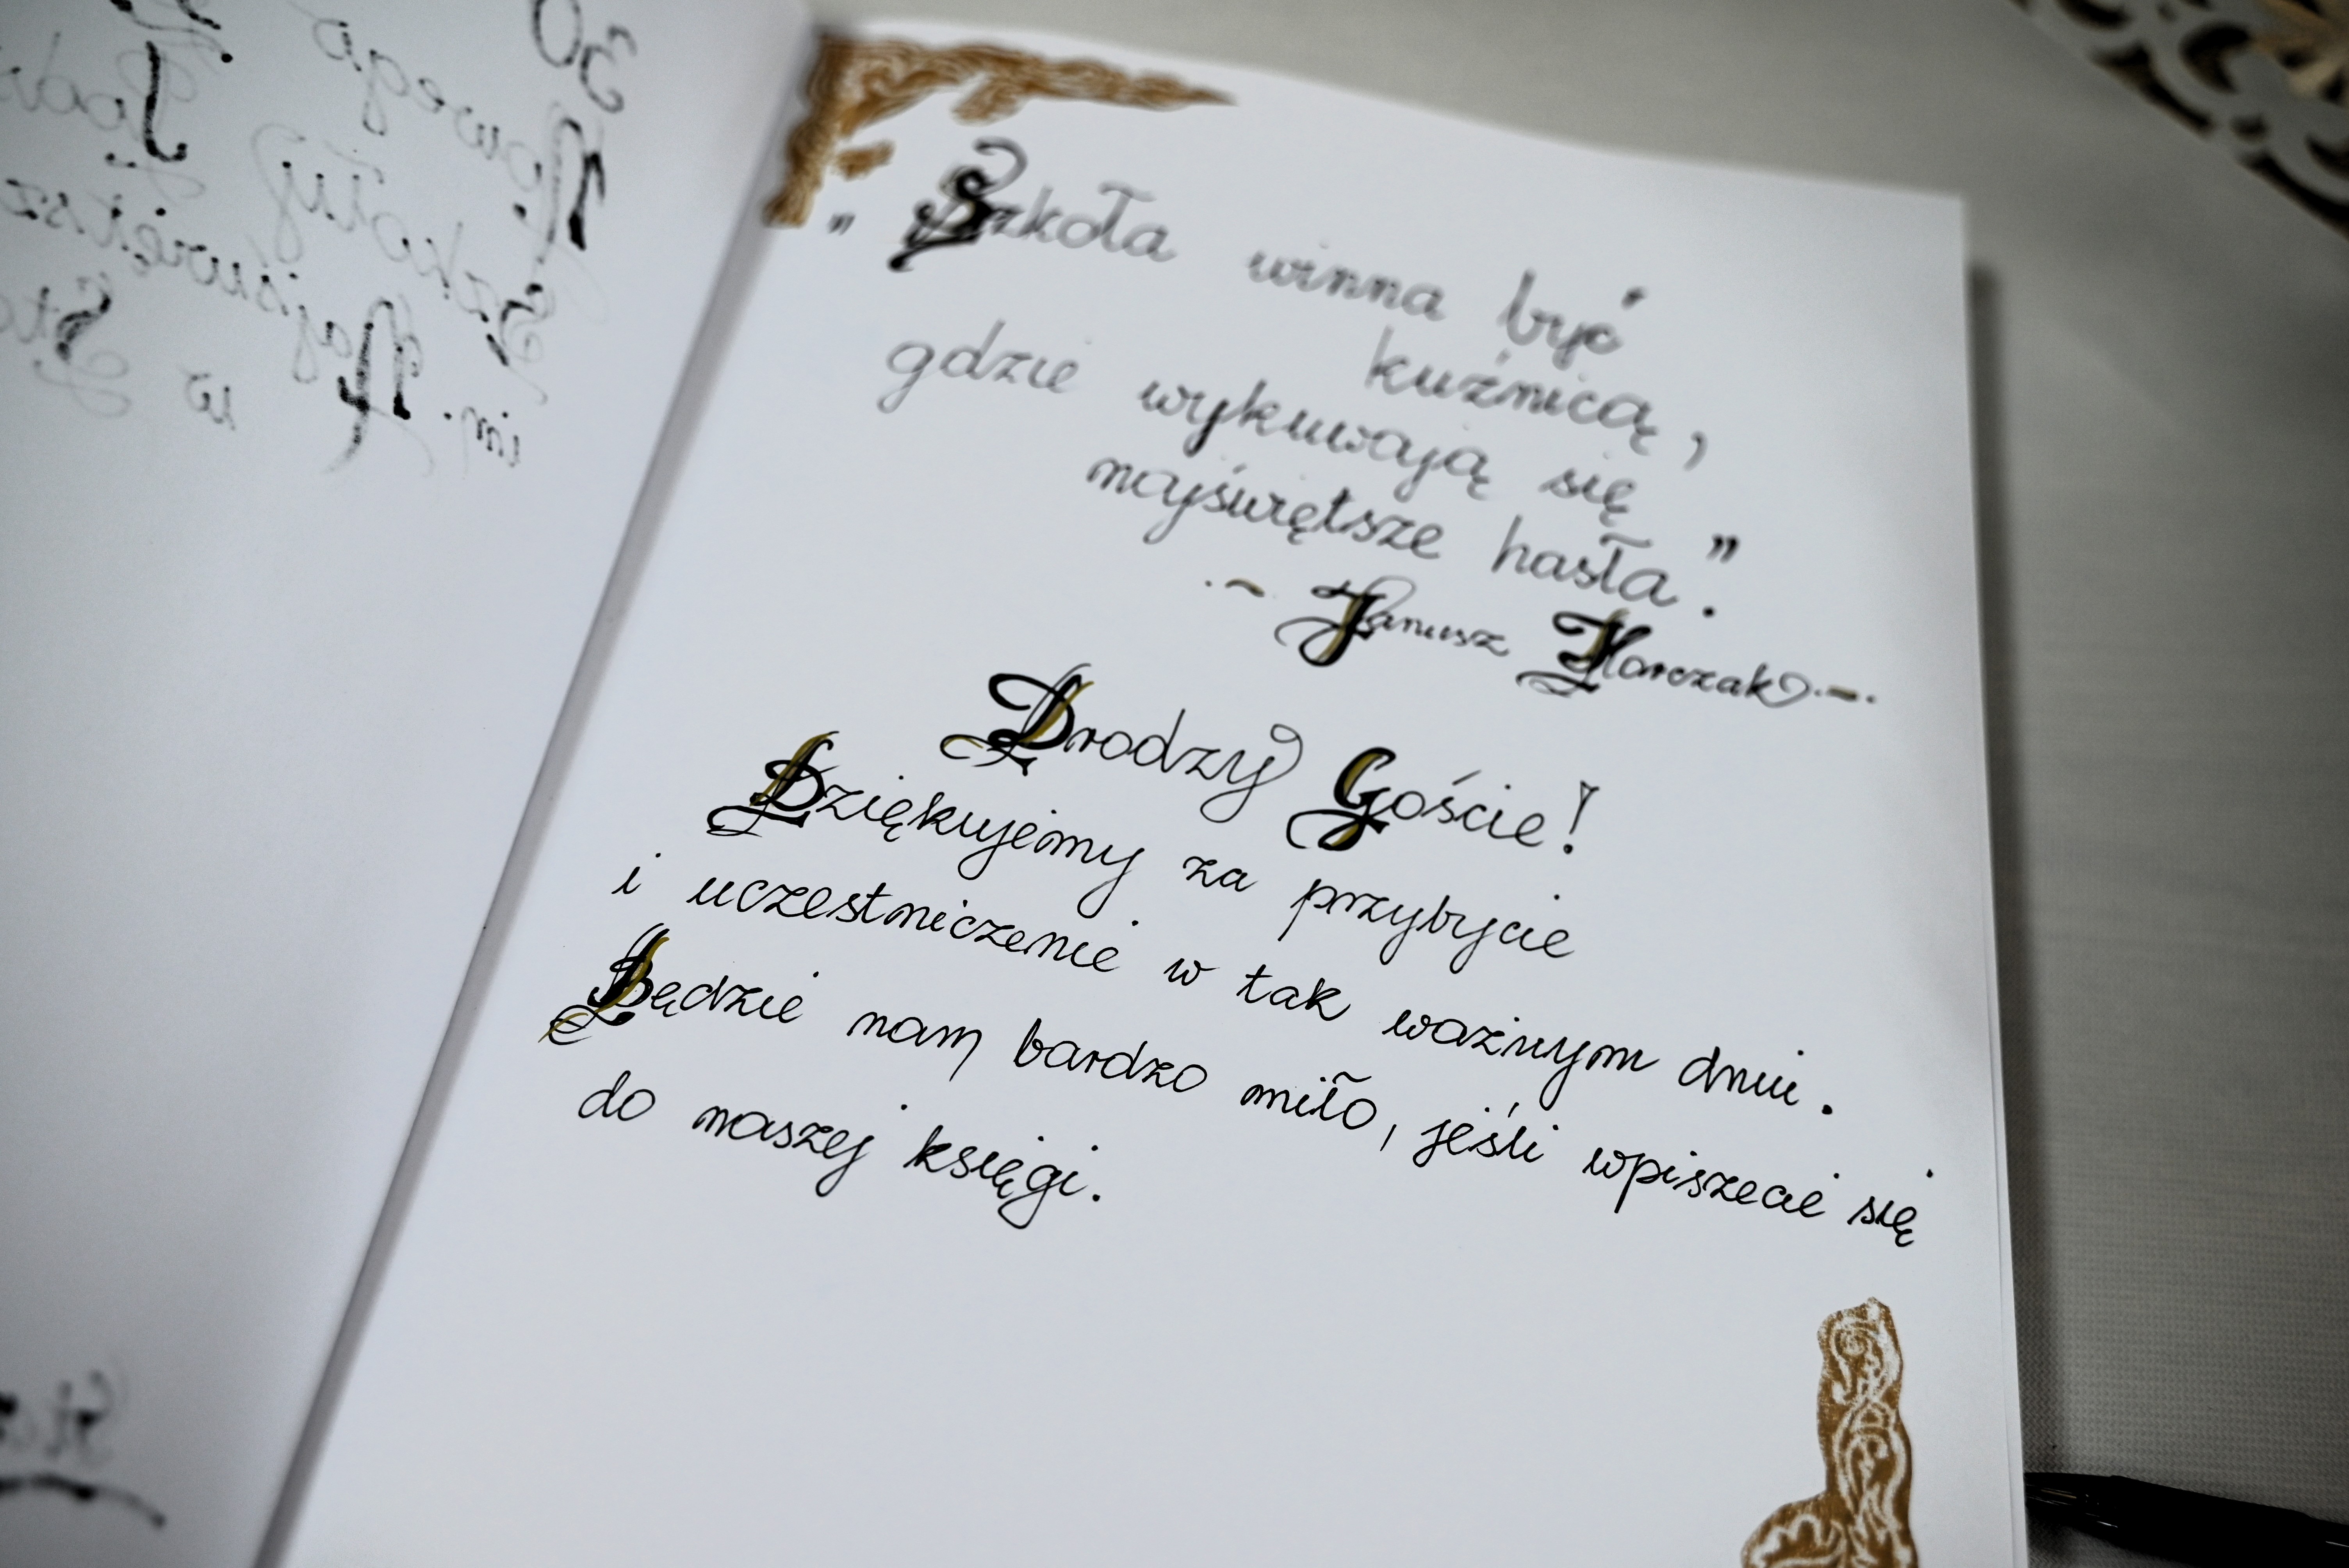 „Szkoła winna być
kuźnicą,
gdzie wykuwają się
najświętsze hasła."
Janusz Korczak
Drodzy Goście!
Dziękujemy za przybycie
i uczestniczenie w tak ważnym dniu.
Będzie nam bardzo miło, jeśli wpiszecie się
do naszej księgi.